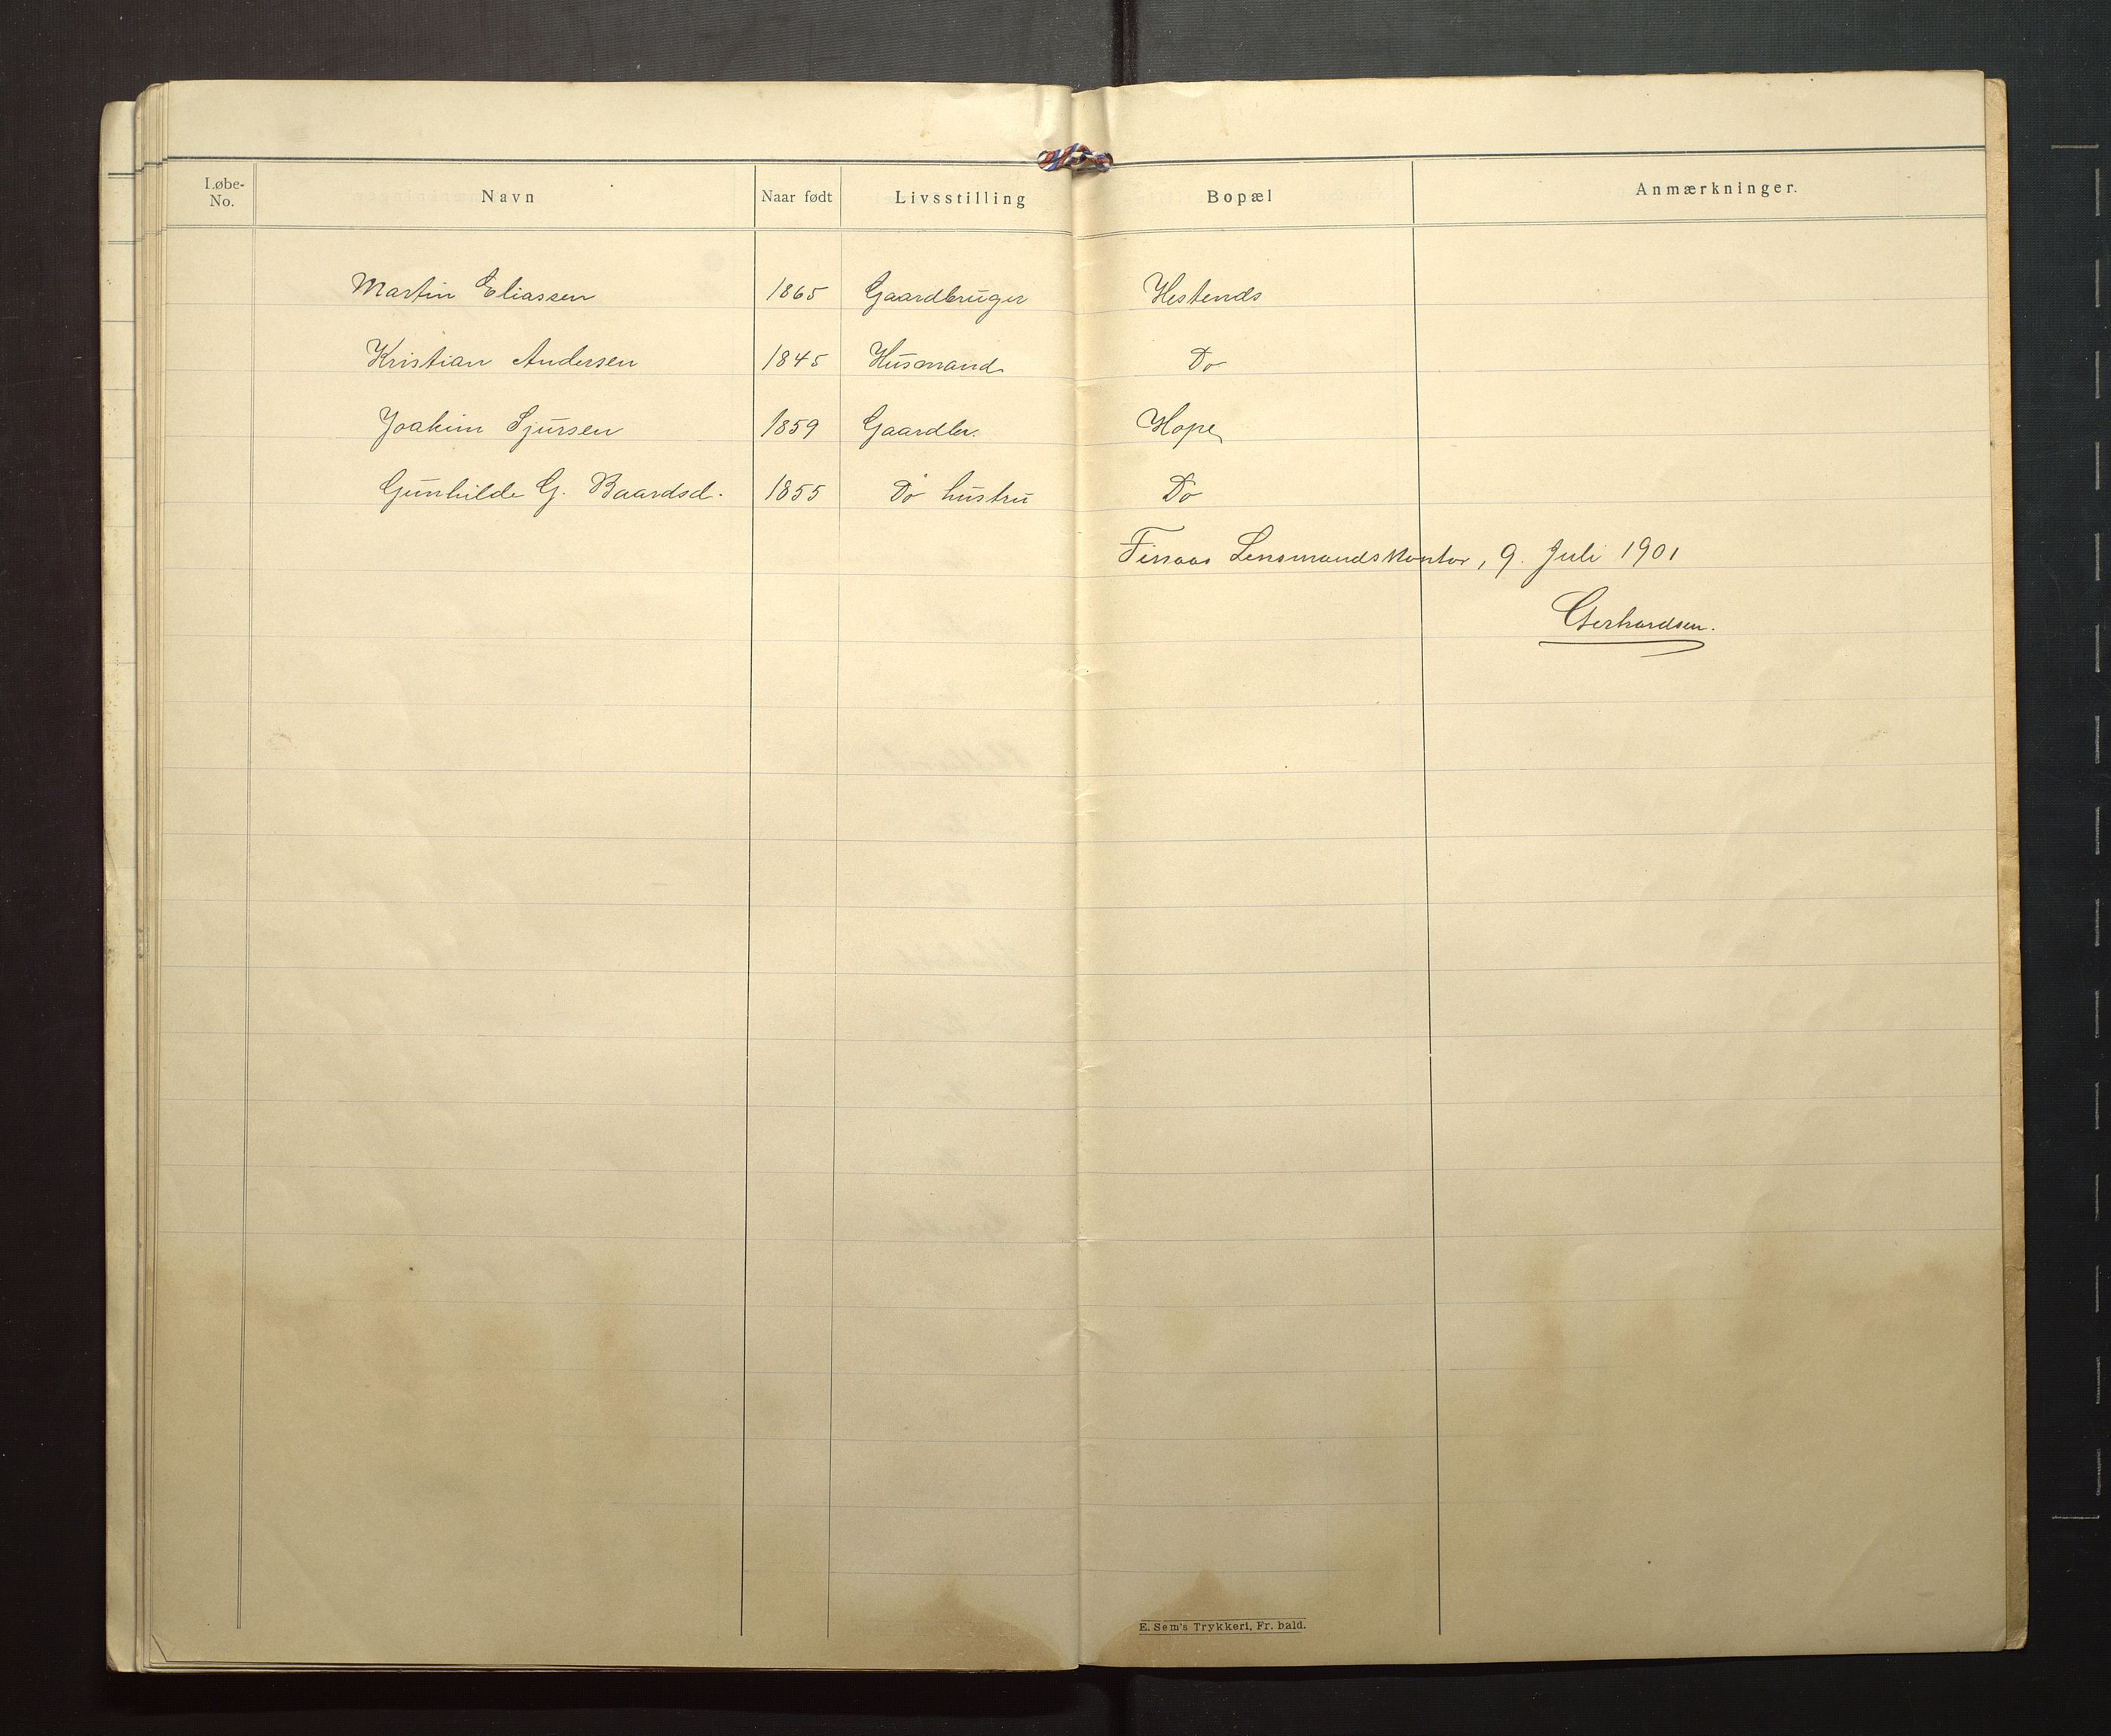 Løbe-No. Navn Naar født Livsstilling Bopæl Anmærkninger.
Martin Eliassen 1865 Gaardbruger Hestenes
Kristian Andersen 1845 Husmand Do
Joakim Sjursen 1859 Gaardbr. Hope
Gunhilde G. Baardsd. 1855 Do hustru Do
Finaas Lensmandskontor, 9. Juli 1901
Gerhardsen.
E. Sem's Trykkeri, Fr. hald.